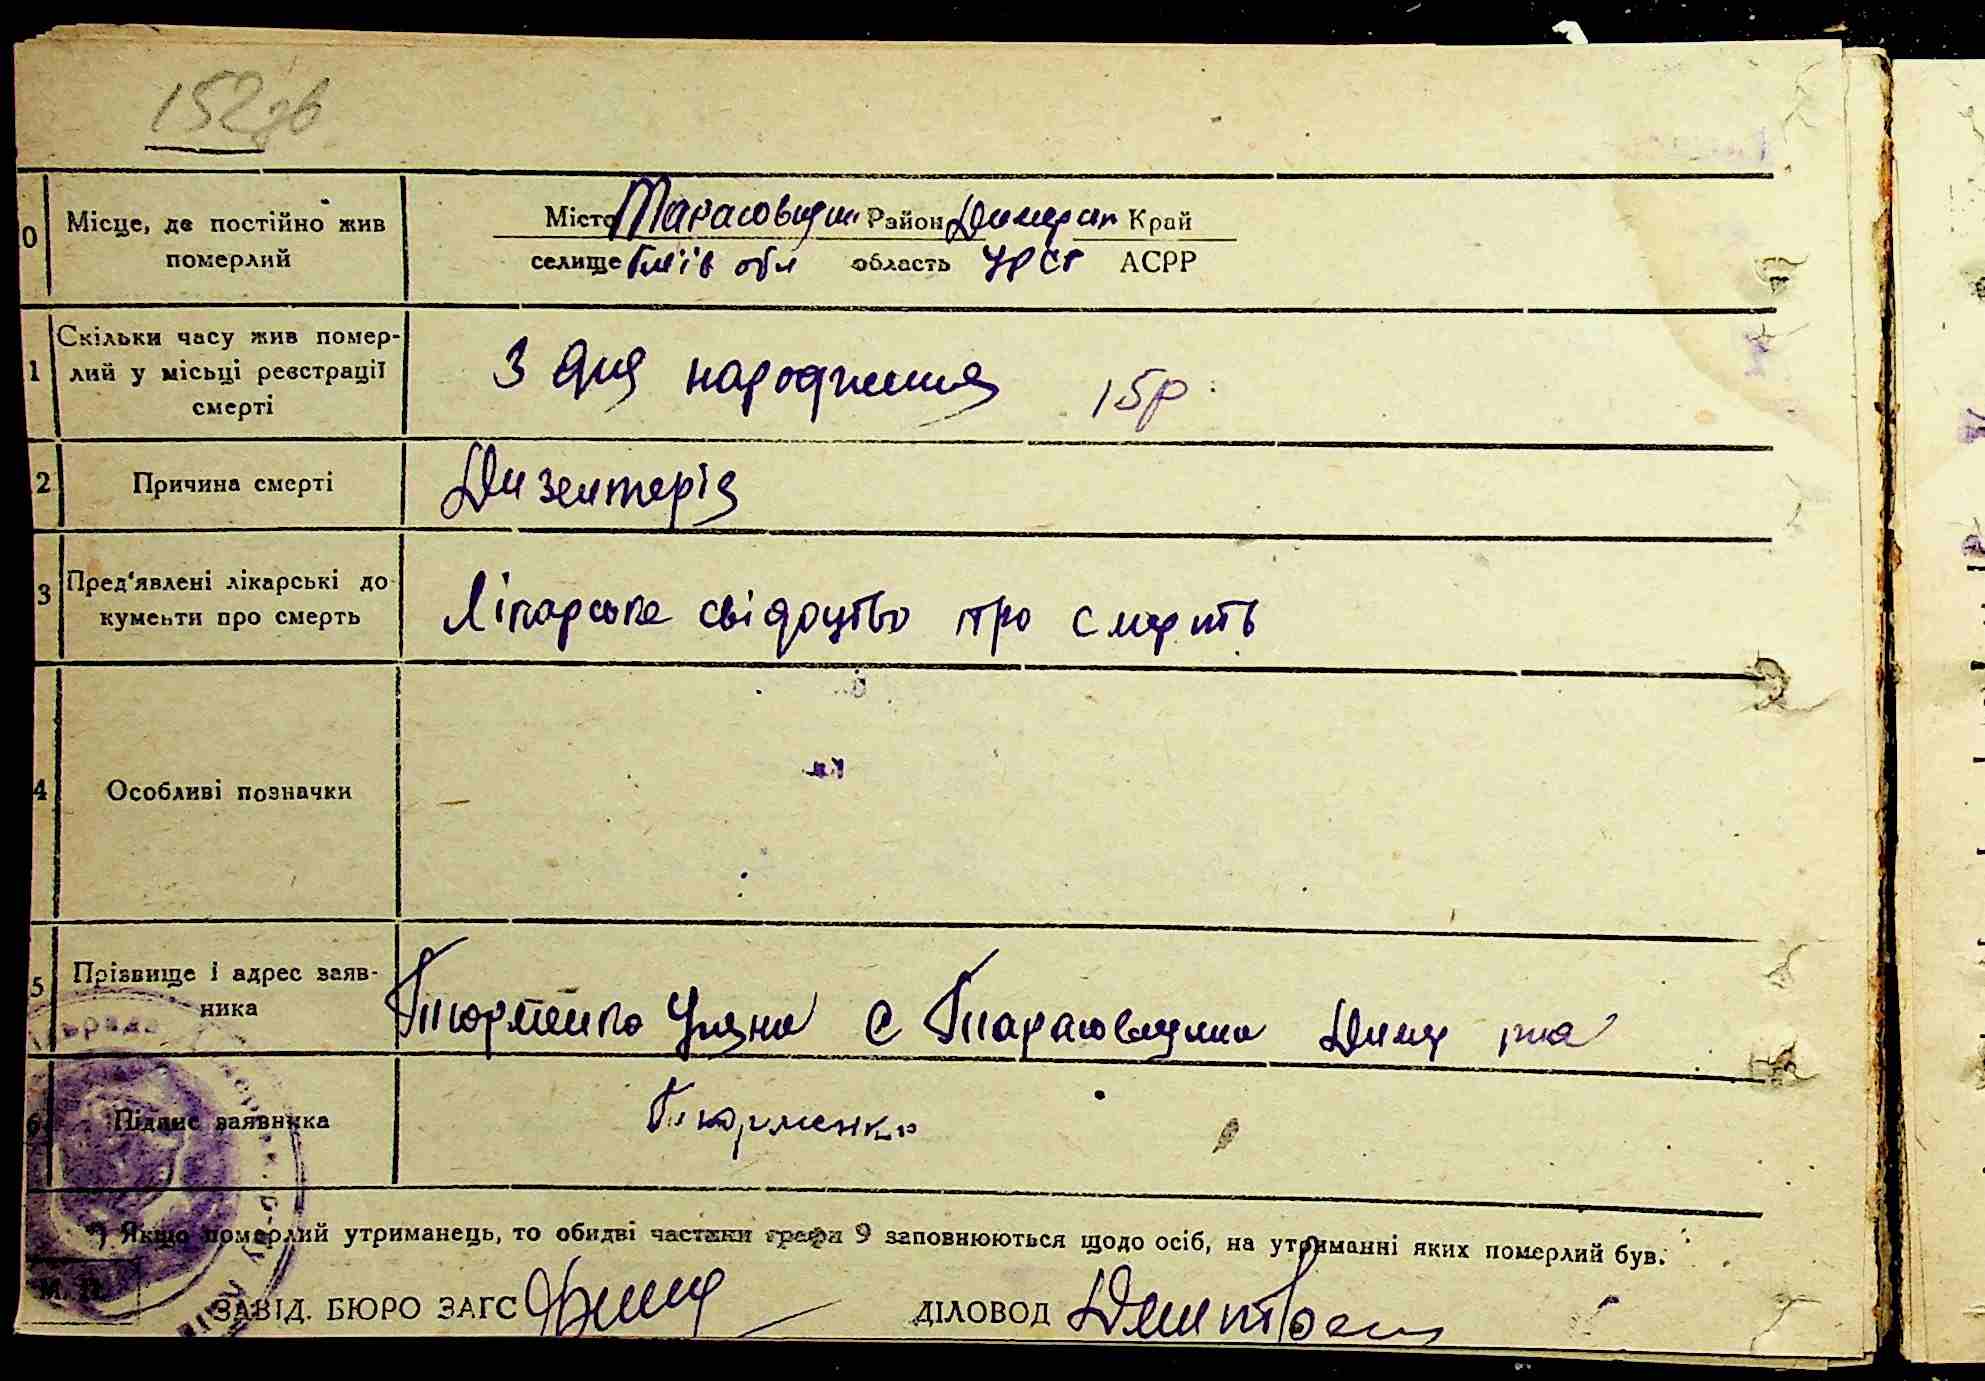 152зв
0 Місце, де постійно жив
померлий
Місто Тарасовщин Район Димерсп Край
селище Київ обл область УРСР АСРР
1 Скільки часу жив помер-
лий у місьці реєстрації
смерті
З дня народження 15р.
2 Причина смерті Дизентерія
3 Пред'явлені лікарські до-
кументи про смерть
Лікарське свідоцтво про смерть
4 Особливі позначки
5 Прізвище і адрес заяв-
ника
Тюрменко Уляна с Тарасовщина Димер рна
6 Підпис заявника Тюрменко
*) Якщо померлий утриманець, то обидві частини графи 9 заповнюються щодо осіб, на утриманні яких померлий був.
М. П.
ЗАВІД. БЮРО ЗАГС ДІЛОВОД